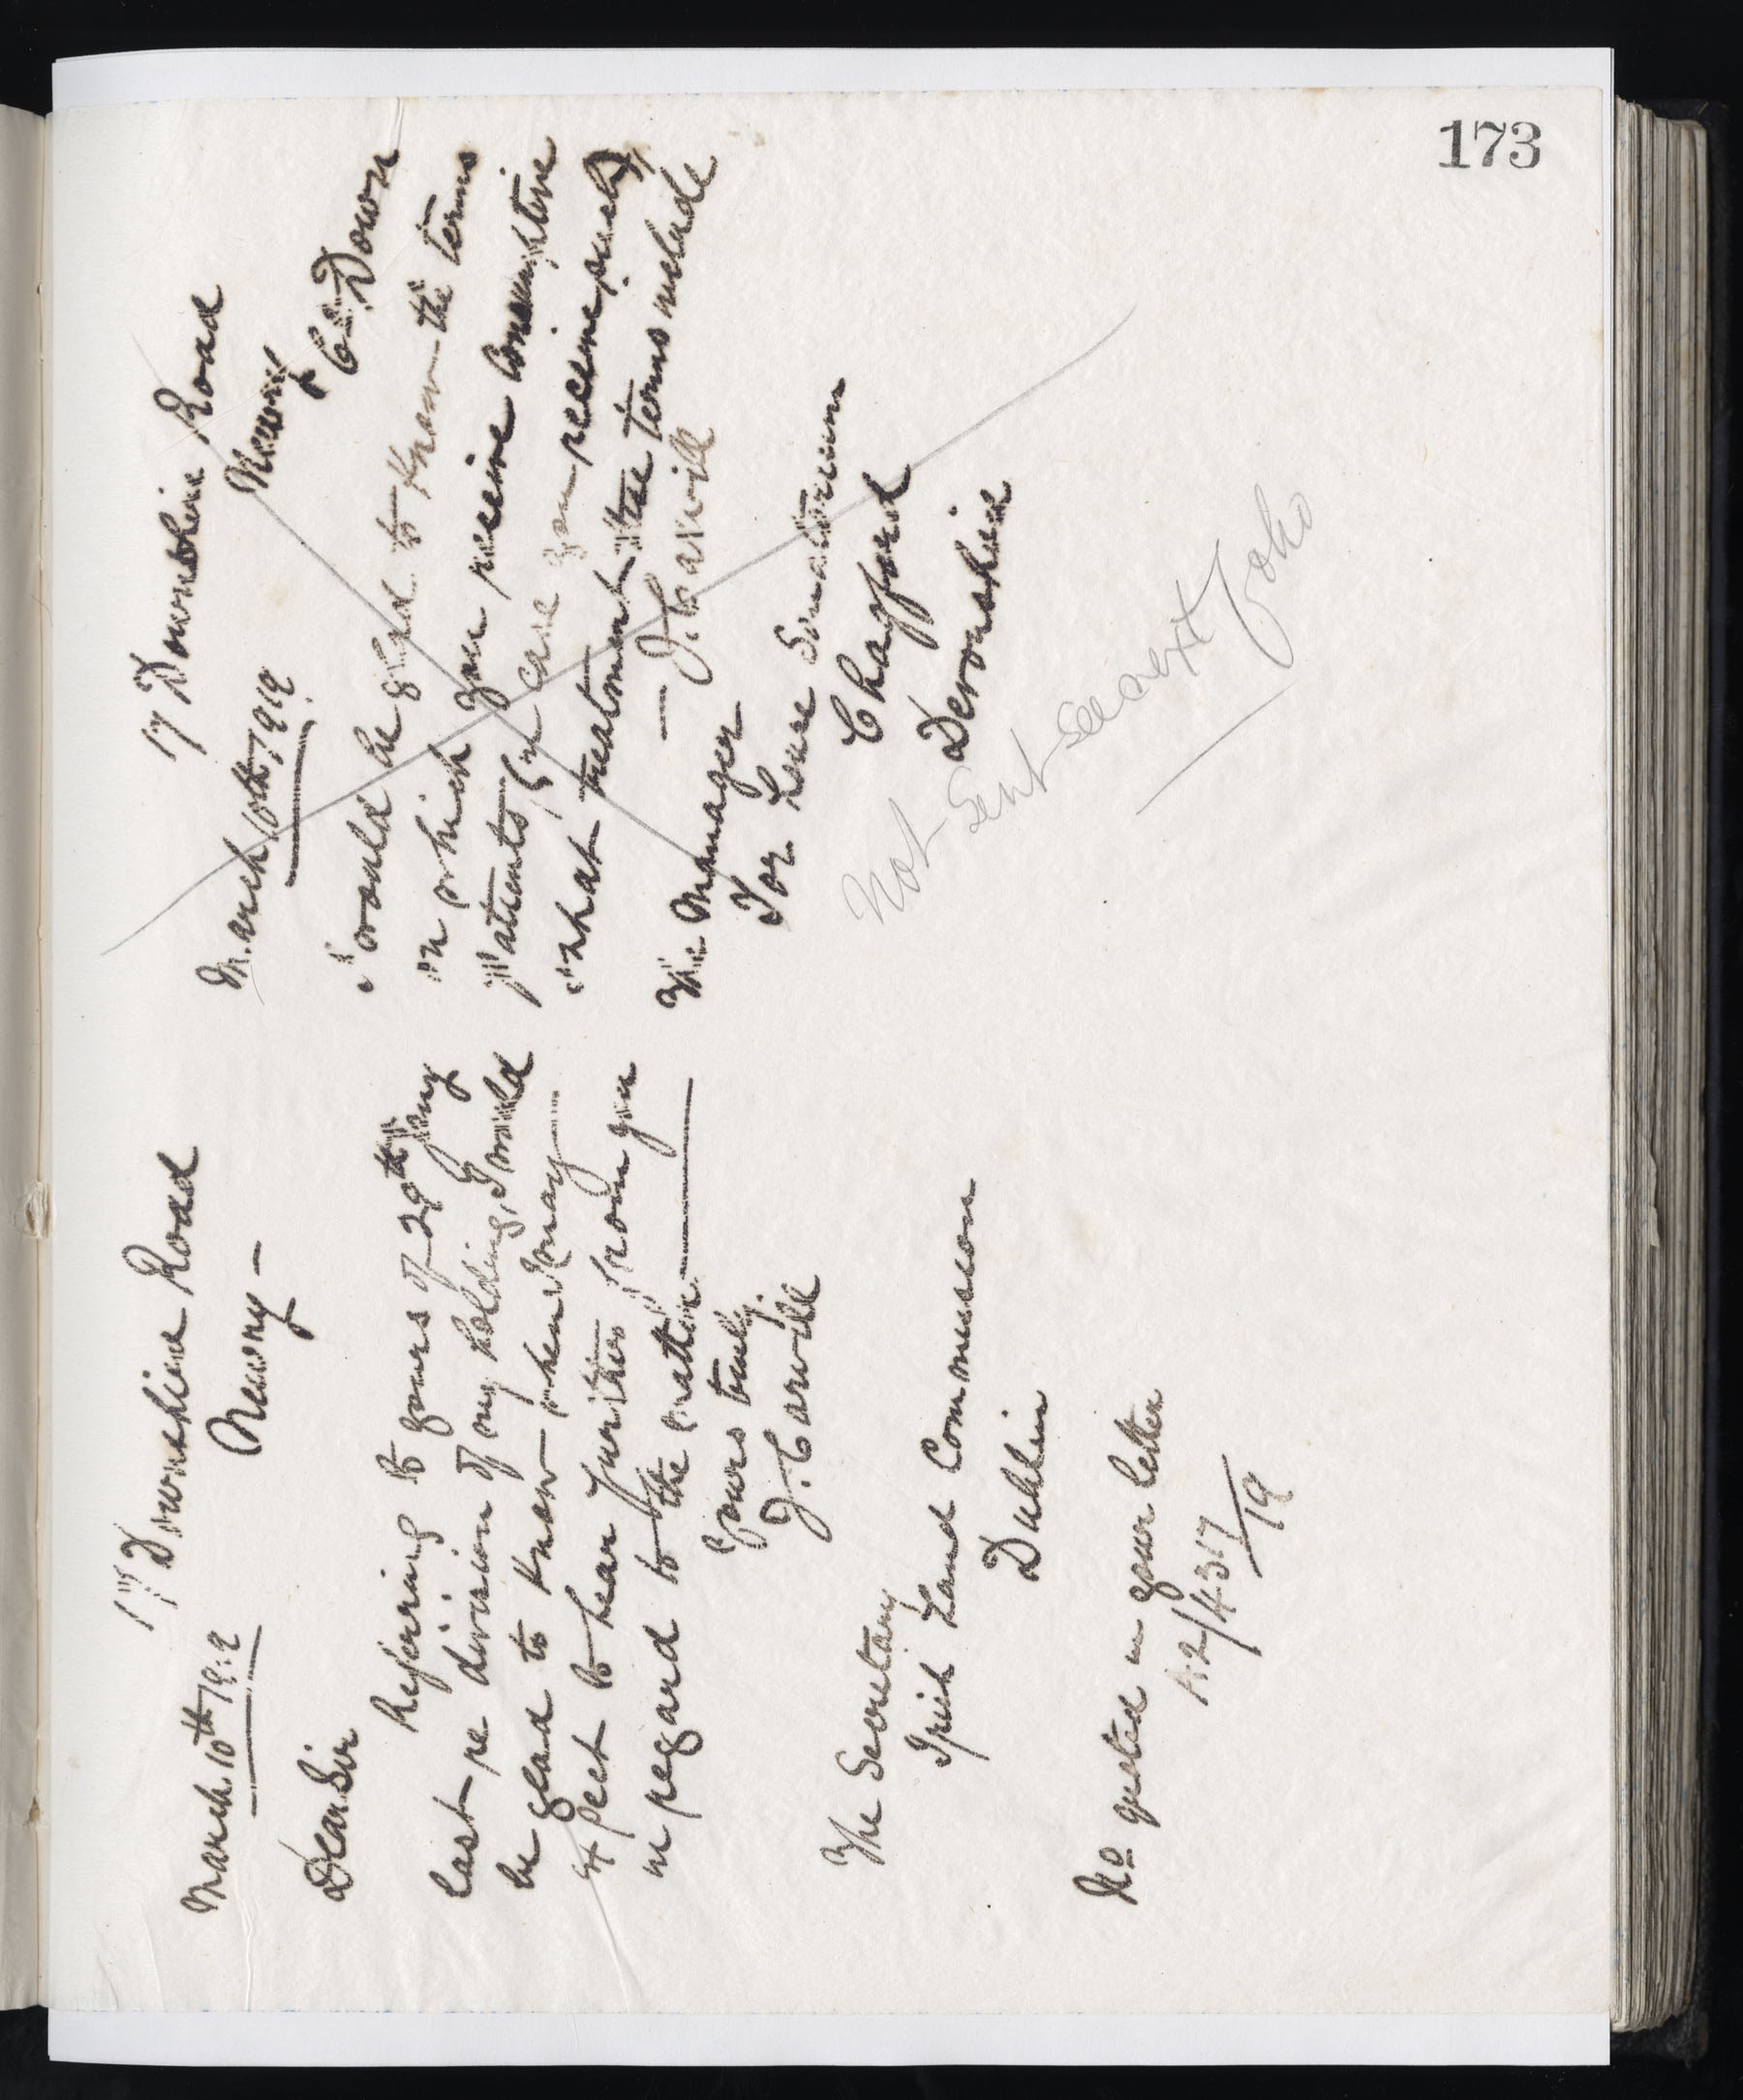 173
17 Downshire Road
Newry
March 10th 1919
Dear Sir
Referring to yours of 29th Jany
last re division of my holding, I would
be glad to know when I may
expect to hear further from you
in regard to the matter.
Yours truly.
J. Carvill
The Secretary
Irish Land Commission
Dublin
No quoted in your letter
17 Downshire Road
Newry
Co. Down
March 10th 1919.
I would be glad to know the terms
on which you receive Consumptive
patients, (in case you receive such)
what treatment the terms include
— J. Carvill
The Manager
Tor House Sanatorium
Chagford
Devonshire
Not sent see next folio